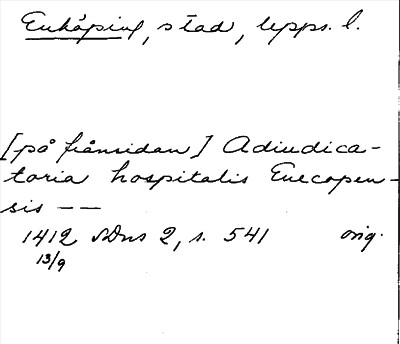 Enköping, stad, upps. l.
[på frånsidan] Adiudica-
toria hospitalis Enecopen-
sis — —
1412 SDns 2, s. 541 orig.
13/9